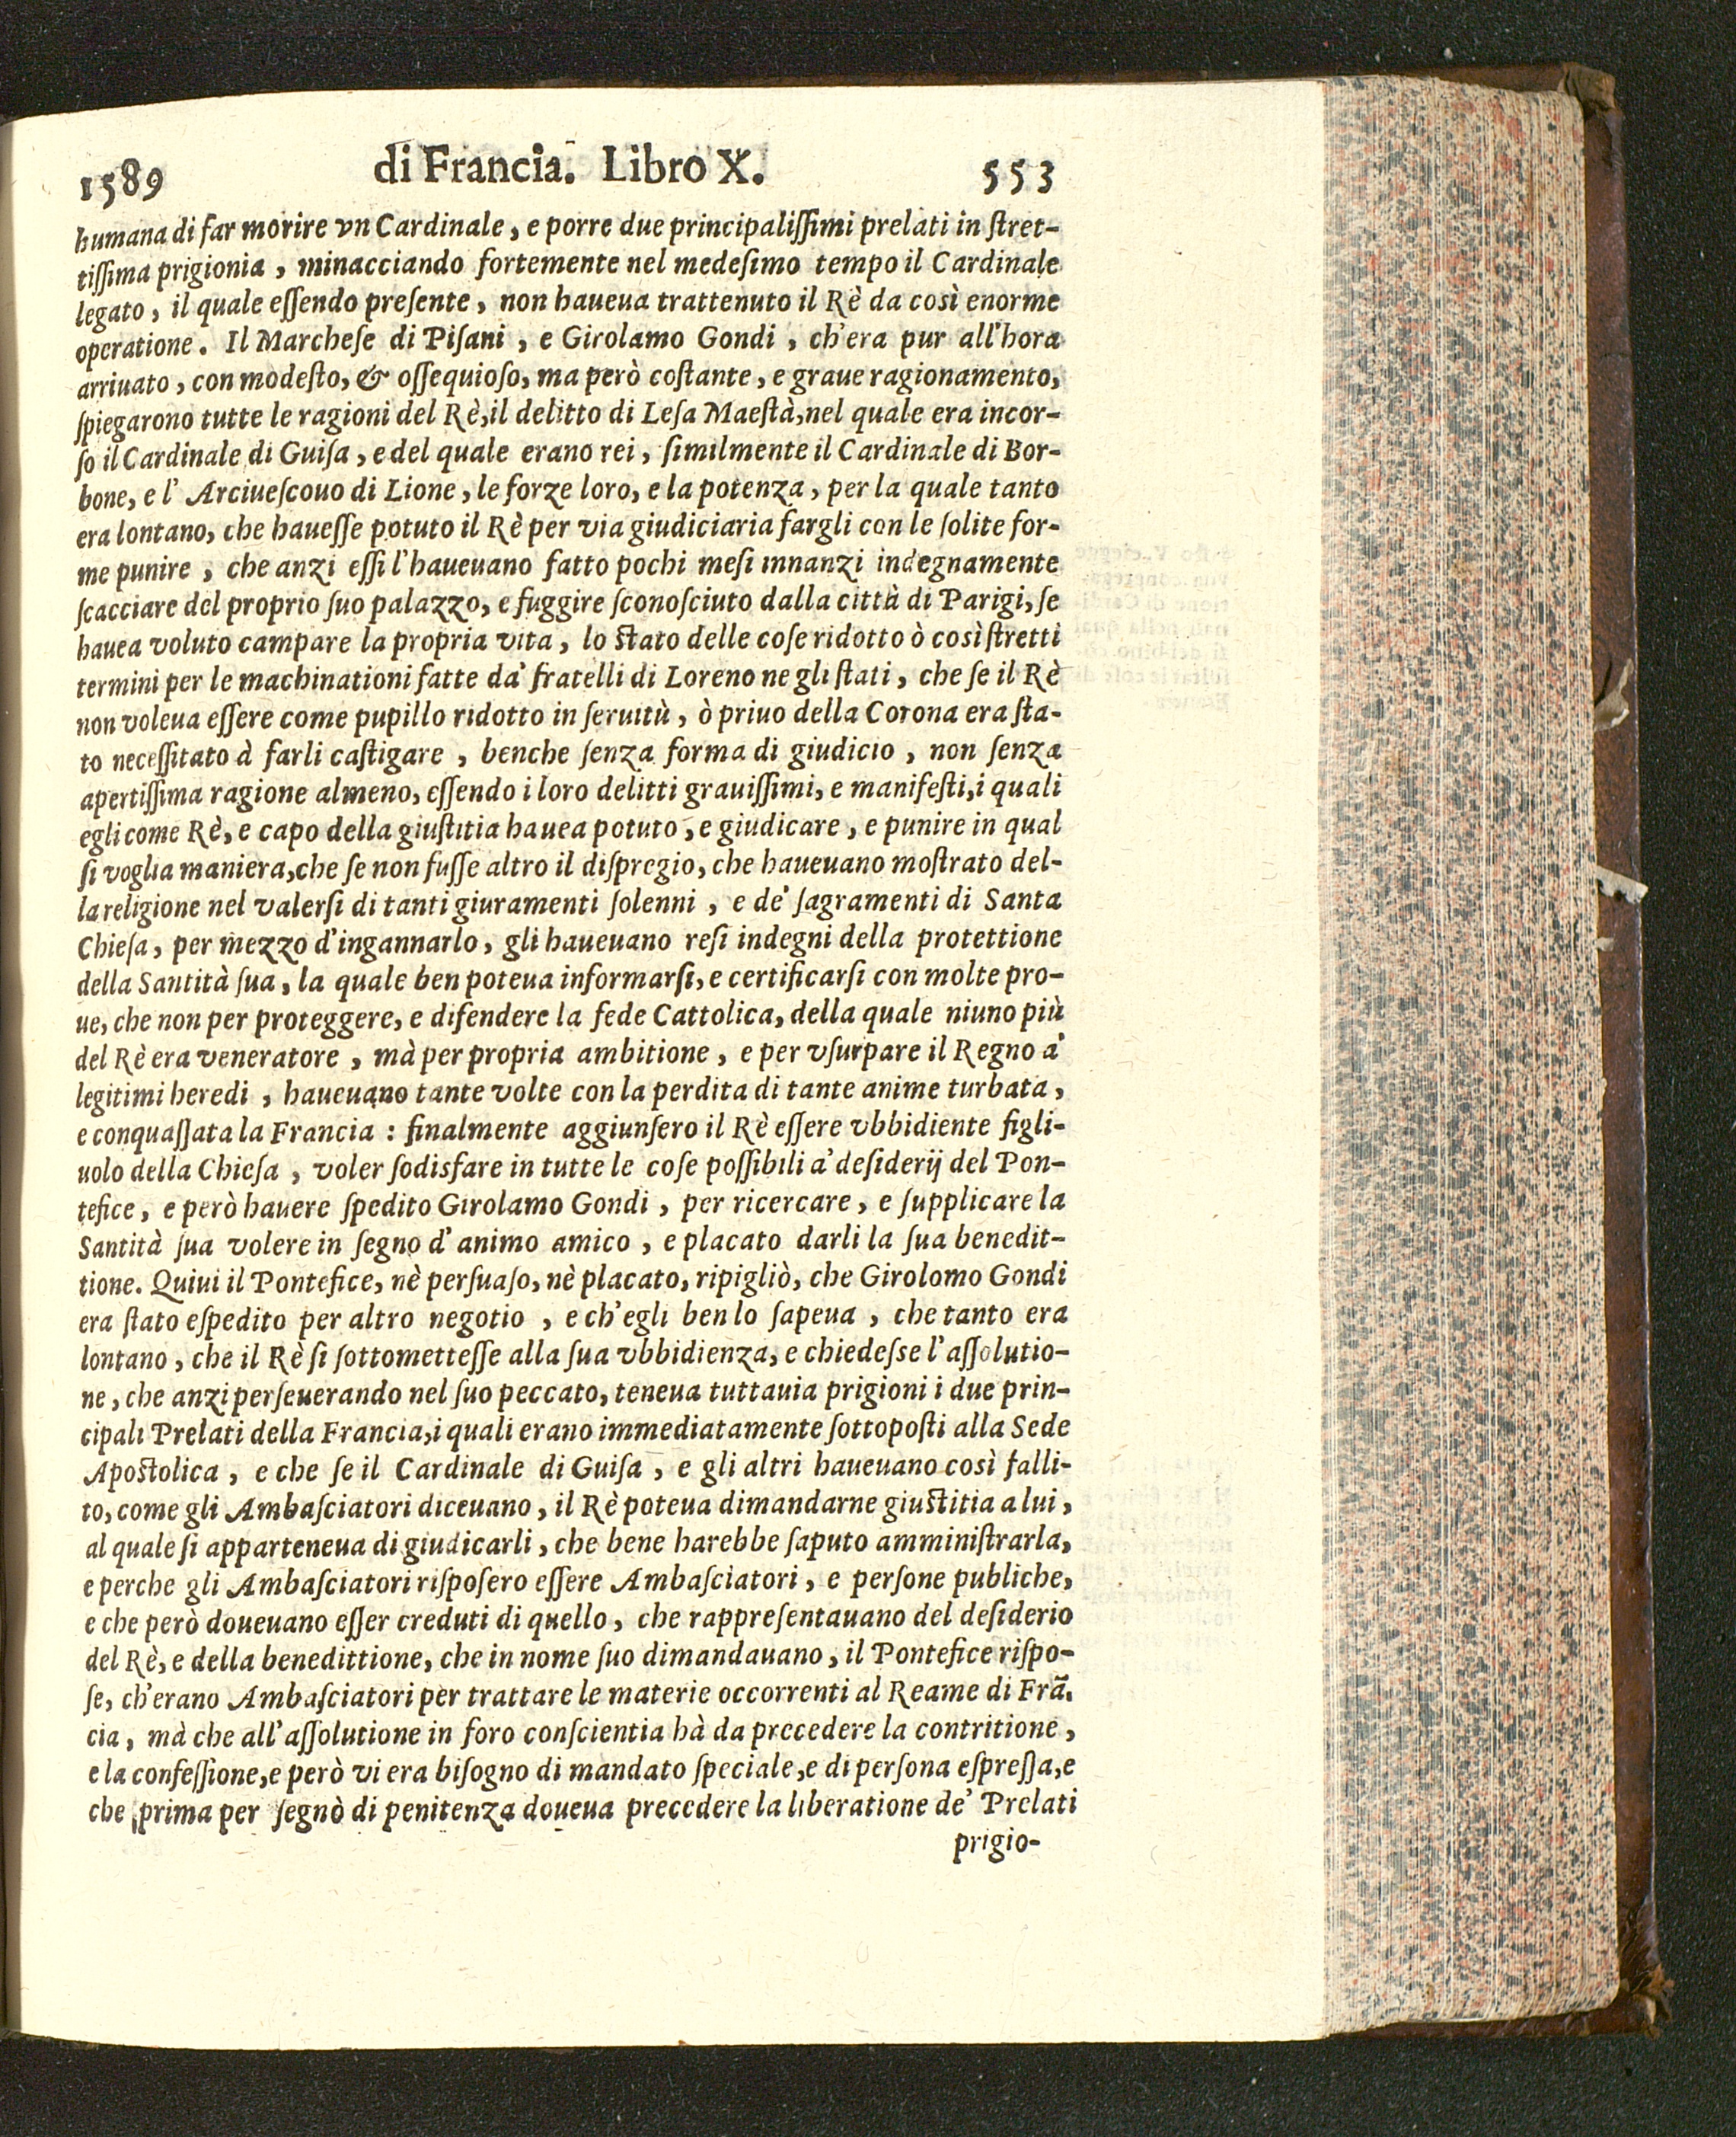 1589 di Francia. Libro X. 553
humana di far morire vn Cardinale, e porre due principaliſſimi prelati in ſtret-
tiſſima prigionia, minacciando fortemente nel medeſimo tempo il Cardinale
legato, il quale eſſendo preſente, non haueua trattenuto il Rè da così enorme
operatione. Il Marcheſe di Piſani, e Girolamo Gondi, ch'era pur all'hora
arriuato, con modeſto, & oſſequioſo, ma però coſtante, e graue ragionamento,
ſpiegarono tutte le ragioni del Rè, il delitto di Leſa Maeſtà, nel quale era incor-
ſo il Cardinale di Guiſa, e del quale erano rei, ſimilmente il Cardinale di Bor-
bone, e l' Arciueſcouo di Lione, le forze loro, e la potenza, per la quale tanto
era lontano, che haueſſe potuto il Rè per via giudiciaria fargli con le ſolite for-
me punire, che anzi eſſi l'haueuano fatto pochi meſi innanzi indegnamente
ſcacciare del proprio ſuo palazzo, e fuggire ſconoſciuto dalla città di Parigi, ſe
hauea voluto campare la propria vita, lo ſtato delle coſe ridotto ò così ſtretti
termini per le machinationi fatte da' fratelli di Loreno ne gli ſtati, che ſe il Rè
non voleua eſſere come pupillo ridotto in ſeruitù, ò priuo della Corona era ſta-
to neceſſitato à farli caſtigare, benche ſenza forma di giudicio, non ſenza
apertiſſima ragione almeno, eſſendo i loro delitti grauiſſimi, e manifeſti, i quali
egli come Rè, e capo della giuſtitia hauea potuto, e giudicare, e punire in qual
ſi voglia maniera, che ſe non fuſſe altro il diſpregio, che haueuano moſtrato del-
la religione nel valerſi di tanti giuramenti ſolenni, e de' ſagramenti di Santa
Chieſa, per mezzo d'ingannarlo, gli haueuano reſi indegni della protettione
della Santità ſua, la quale ben poteua informarſi, e certificarſi con molte pro-
ue, che non per proteggere, e difendere la fede Cattolica, della quale niuno più
del Rè era veneratore, mà per propria ambitione, e per vſurpare il Regno a'
legitimi heredi, haueuano tante volte con la perdita di tante anime turbata,
e conquaſſata la Francia : finalmente aggiunſero il Rè eſſere vbbidiente figli-
uolo della Chieſa, voler ſodisfare in tutte le coſe poſſibili a' deſiderij del Pon-
tefice, e però hauere ſpedito Girolamo Gondi, per ricercare, e ſupplicare la
Santità ſua volere in ſegno d' animo amico, e placato darli la ſua benedit-
tione. Quiui il Pontefice, nè perſuaſo, nè placato, ripigliò, che Girolomo Gondi
era ſtato eſpedito per altro negotio, e ch'egli ben lo ſapeua, che tanto era
lontano, che il Rè ſi ſottometteſſe alla ſua vbbidienza, e chiedeſse l'aſſolutio-
ne, che anzi perſeuerando nel ſuo peccato, teneua tuttauia prigioni i due prin-
cipali Prelati della Francia, i quali erano immediatamente ſottopoſti alla Sede
Apoſtolica, e che ſe il Cardinale di Guiſa, e gli altri haueuano così falli-
to, come gli Ambaſciatori diceuano, il Rè poteua dimandarne giuſtitia a lui,
al quale ſi apparteneua di giudicarli, che bene harebbe ſaputo amminiſtrarla,
e perche gli Ambaſciatori riſpoſero eſſere Ambaſciatori, e perſone publiche,
e che però doueuano eſſer creduti di quello, che rappreſentauano del deſiderio
del Rè, e della benedittione, che in nome ſuo dimandauano, il Pontefice riſpo-
ſe, ch'erano Ambaſciatori per trattare le materie occorrenti al Reame di Frã.
cia, mà che all'aſſolutione in foro conſcientia hà da precedere la contritione,
e la confeſſione, e però vi era biſogno di mandato ſpeciale, e di perſona eſpreſſa, e
che prima per ſegnò di penitenza doueua precedere la liberatione de' Prelati
prigio-